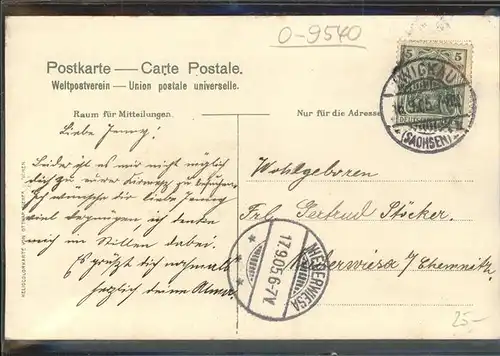 O-9540
Postkarte — Carte Postale.
Weltpostverein — Union postale universelle.
Raum für Mitteilungen.
Nur für die Adresse
5 5
ZWICKAU
(SACHSEN)
Liebe Jenny!
Leider ist es mir nicht möglich
dich zu eurer Kirmess zu besuchen.
Ich wünsche dir liebe Jenny
viel Vergnügen, ich denke
mich im Stillen dabei.
Es grüßt dich nochmals
herzlich deine Alma.
Wohlgeboren
Frl. Gertrud Stöcker.
Niederwiesa b/ Chemnitz.
17.9.05.6-7.V.
NIEDERWIESA
25-